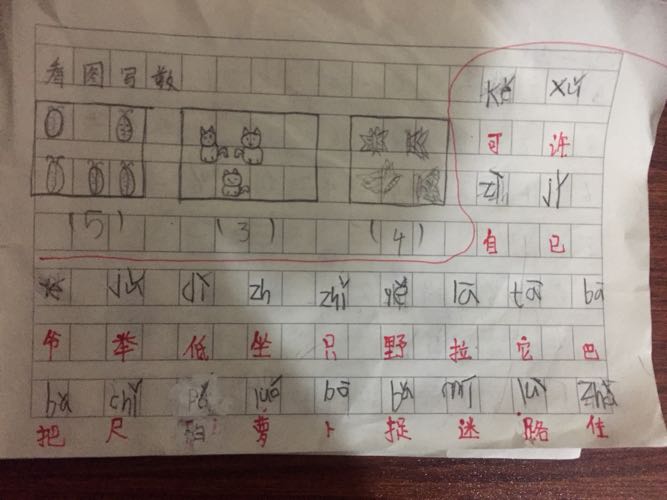 看图写数 kě xǔ
可 许
zì jǐ
(5) (3) (4) 自 己
jǔ dī zh zhǐ yě lā tā bā
爷 举 低 坐 只 野 拉 它 巴
bǎ chǐ pà luó bo mí lù zhù
把 尺 怕 萝 卜 捉 迷 路 住